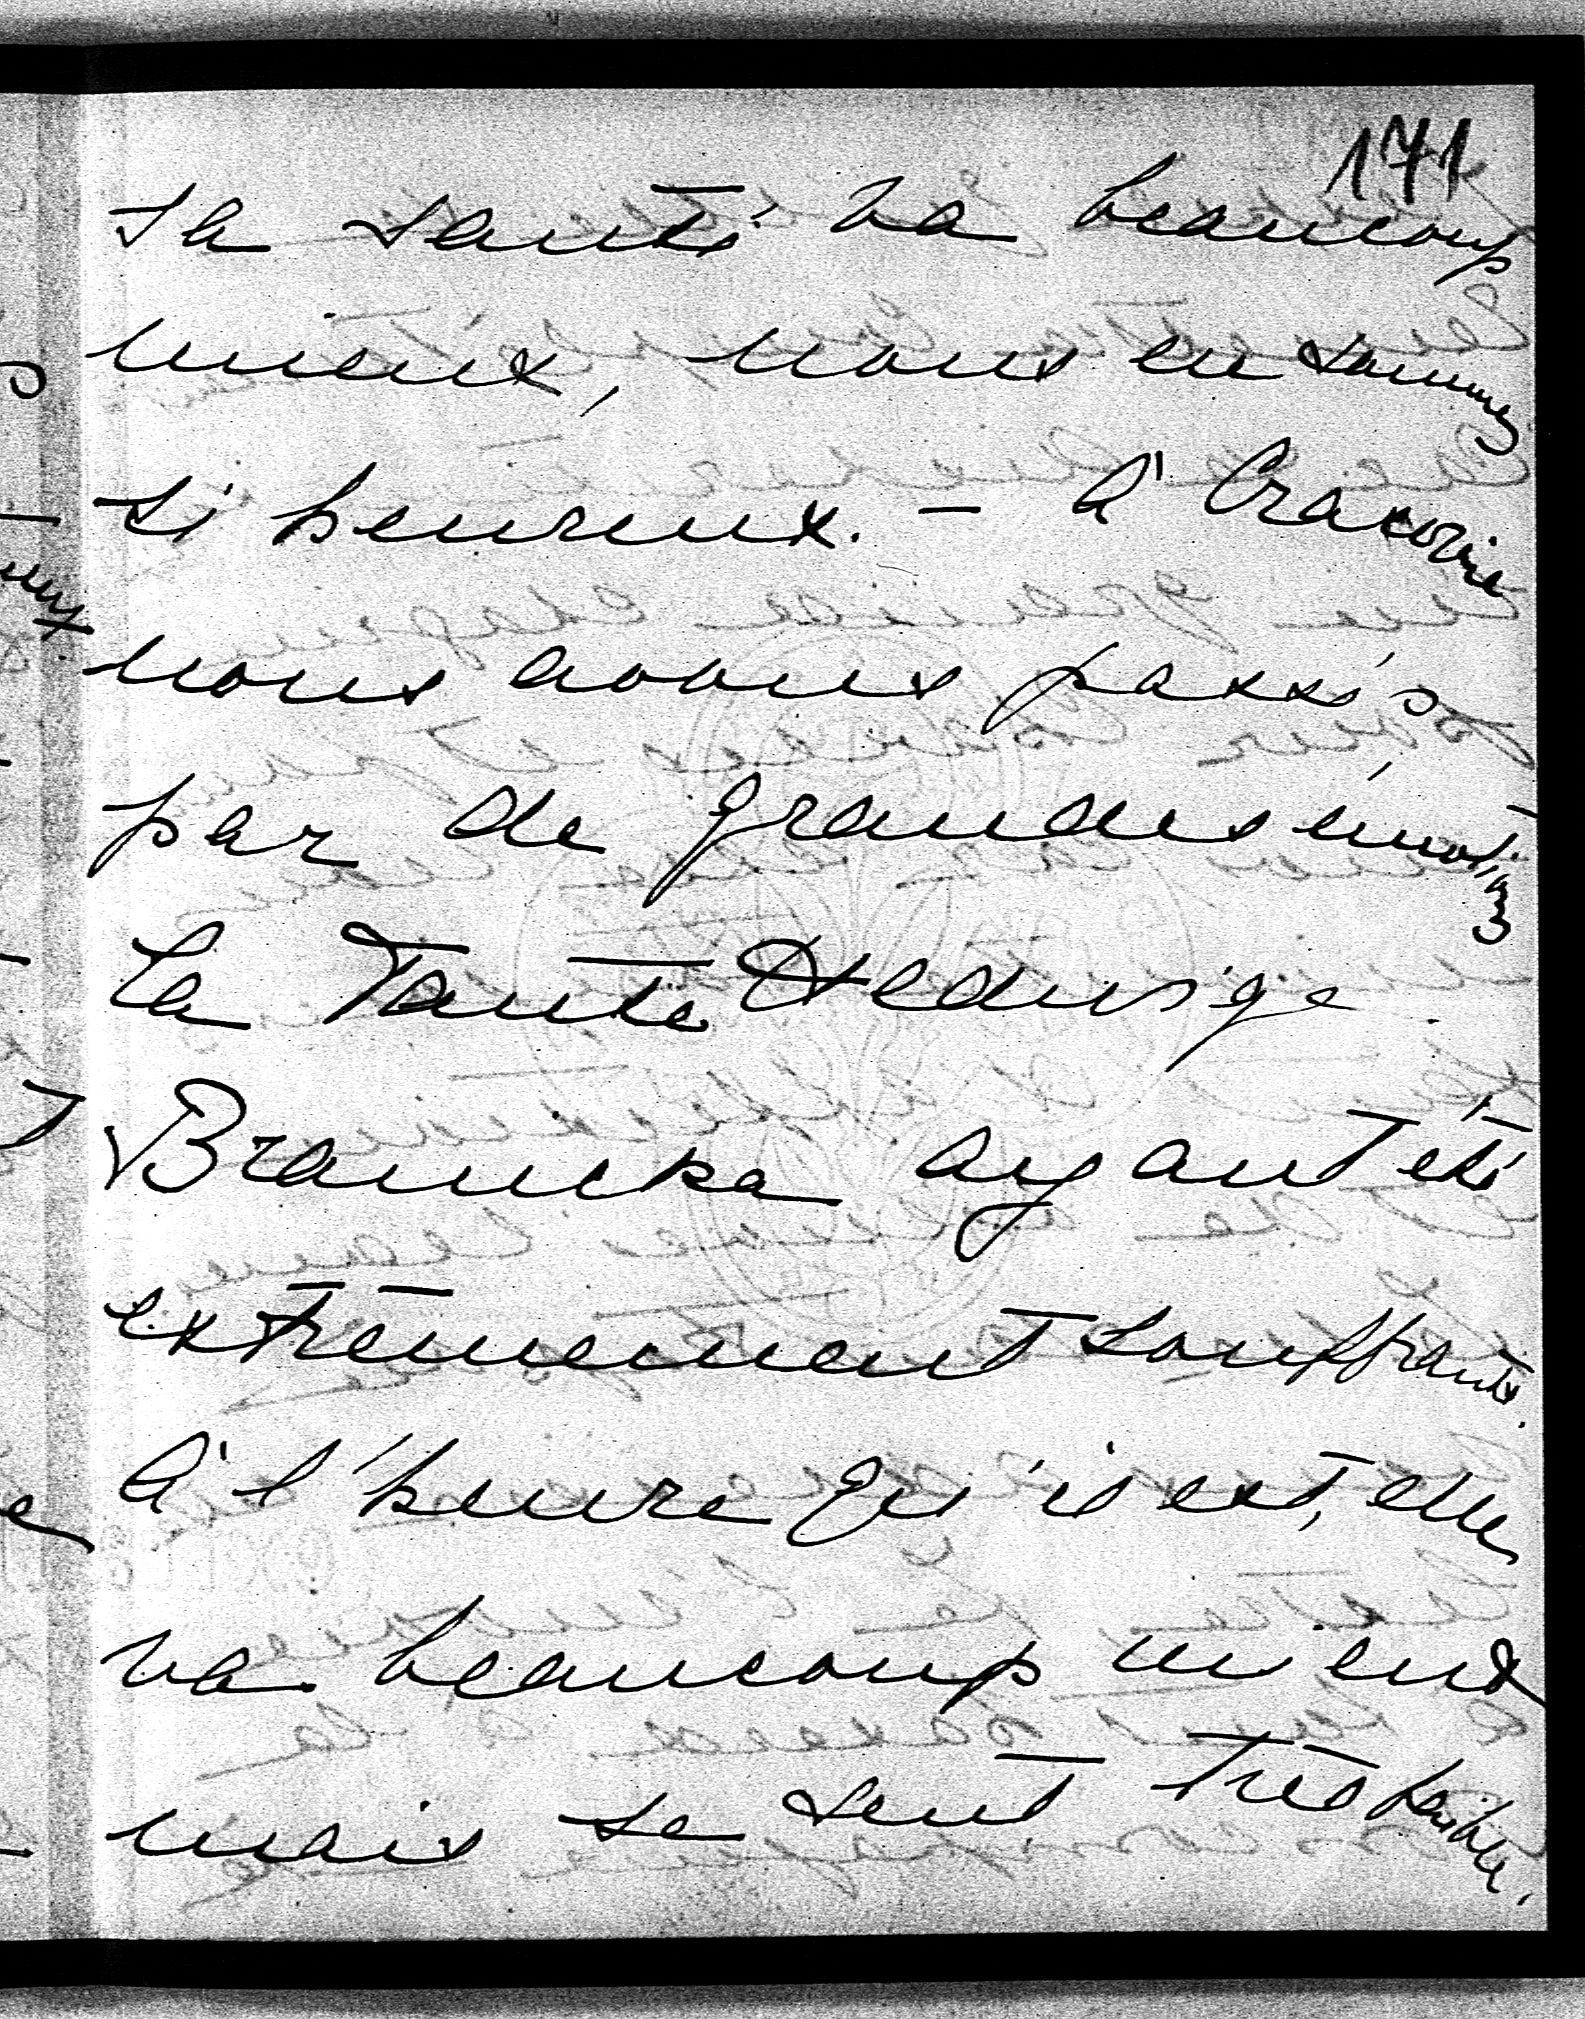 171
sa santé va beaucoup
mieux, nous en sommes
si heureux. – A' Cracovie
nous avons passés
par de grandes émotions
La Tante Hedwige
Branicka ayant été
extrêmement souffrante.
A' l'heure qu'il est, elle
va beaucoup mieux
mais se sent très faible.